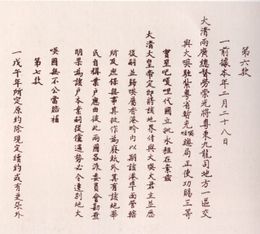 第六款
一前據本年二月二十八日
大清兩廣總督勞崇光將粵東九龍司地方一區交
與大𠸄駐紮粵省暫充𠸄總局正使功賜三等
寶星巴嗄哩代國立批永租在案茲
大清大皇帝定即將該地界付與大𠸄大君主並歷
後嗣並歸𠸄屬香港界內以期該港埠面管轄
所及庶保無事其批作為廢紙外其有該地華
民自稱業戶應由彼此兩國各派委員會勘查
明果為該戶本業嗣後倘遇勢必令遷別地大
𠸄國無不公當賠補
第七款
一戊午年所定原約除現定續約或有更張外